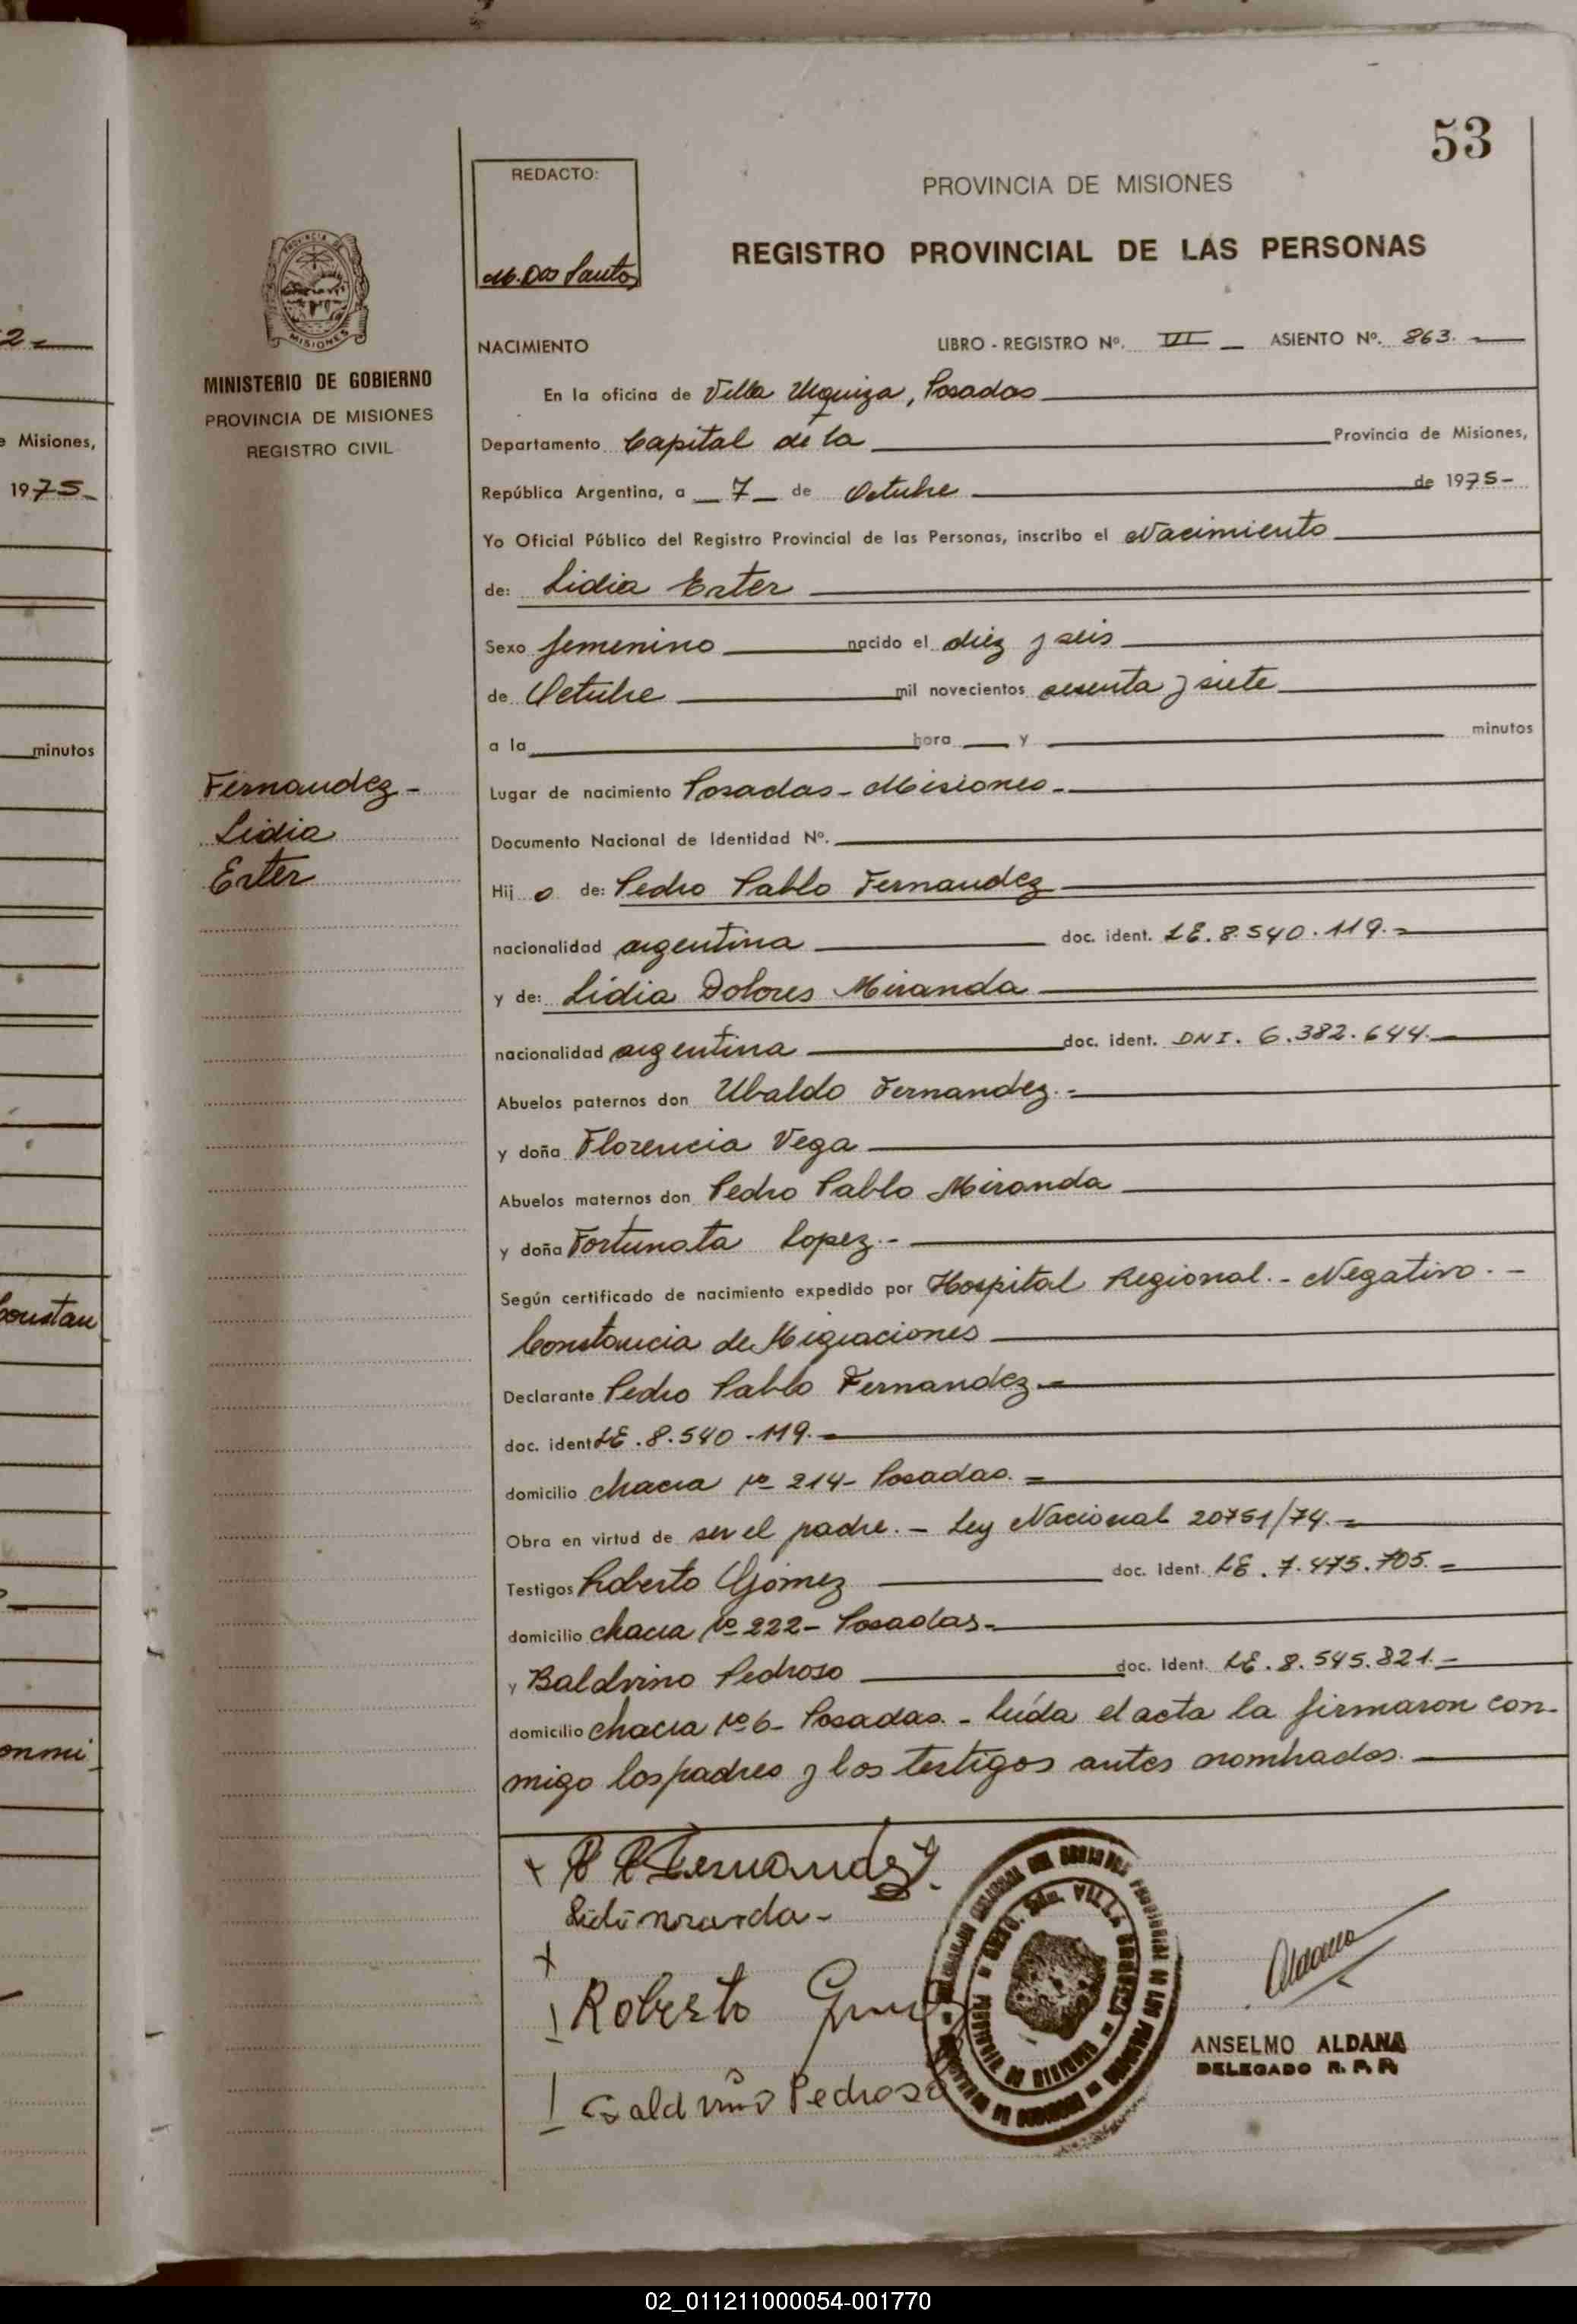 53
REDACTO:
M. Dos Santos
PROVINCIA DE MISIONES
REGISTRO PROVINCIAL DE LAS PERSONAS
PROVINCIA DE
MISIONES
MINISTERIO DE GOBIERNO
PROVINCIA DE MISIONES
REGISTRO CIVIL
NACIMIENTO LIBRO - REGISTRO Nº. VI ASIENTO Nº. 863.
En la oficina de Villa Urquiza, Posadas
Departamento Capital de la Provincia de Misiones,
República Argentina, a 7 de Octubre de 1975-
Yo Oficial Público del Registro Provincial de las Personas, inscribo el Nacimiento
de: Lidia Ester
Sexo femenino nacido el diez y seis
de Octubre mil novecientos sesenta y siete
a la hora y minutos
Fernandez -
Lidia
Ester
Lugar de nacimiento Posadas - Misiones -
Documento Nacional de Identidad Nº.
Hij o de: Pedro Pablo Fernandez
nacionalidad argentina doc. ident. LE. 8.540.119.-
y de: Lidia Dolores Miranda
nacionalidad argentina doc. ident. DNI. 6.382.644.
Abuelos paternos don Ubaldo Fernandez.-
y doña Florencia Vega
Abuelos maternos don Pedro Pablo Miranda
y doña Fortunata Lopez.-
Según certificado de nacimiento expedido por Hospital Regional.- Negativo.-
Constancia de Migraciones
Declarante Pedro Pablo Fernandez.-
doc. ident LE. 8.540.119.-
domicilio chacra Nº 214- Posadas.-
Obra en virtud de ser el padre.- Ley Nacional 20751/74.-
Testigos Roberto Gómez doc. Ident. LE. 7.475.705.-
domicilio chacra Nº 222- Posadas-
y Baldvino Pedroso doc. Ident. LE. 8.545.821.-
domicilio chacra Nº 6- Posadas.- leída el acta la firmaron con-
migo los padres y los testigos antes nombrados.
P P Fernandez
Lidi Miranda-
Roberto Gomez
Baldvino Pedroso
VILLA URQUIZA
PROVINCIA DE MISIONES
Aldana
ANSELMO ALDANA
DELEGADO R. P. P.
2-
e Misiones,
1975-
minutos
Constan
onmi
02_011211000054-001770